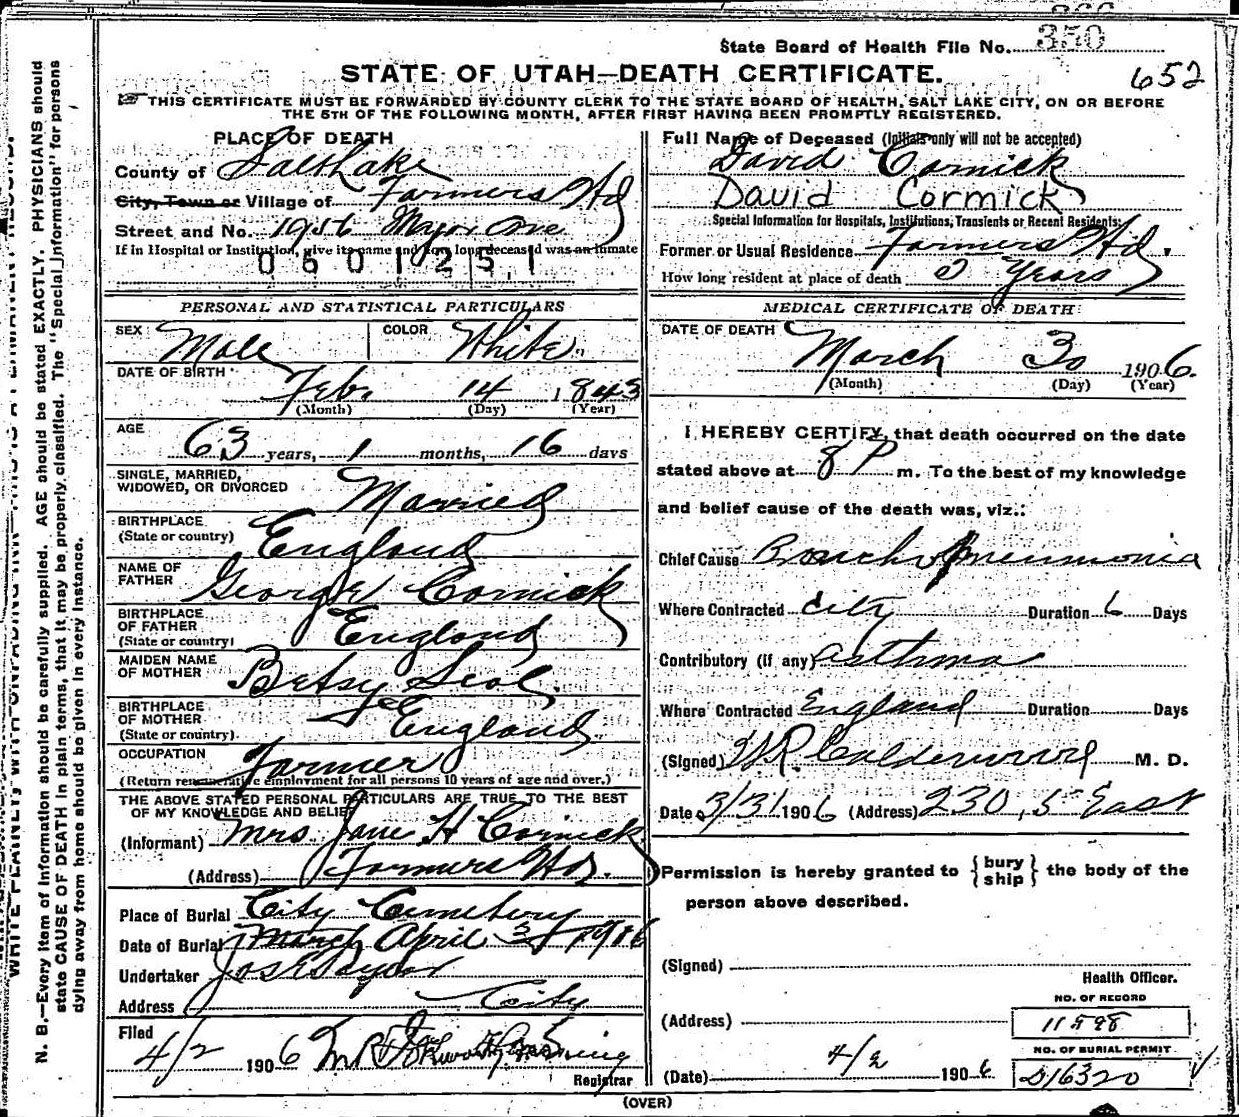 State Board of Health File No. 350
652
STATE OF UTAH—DEATH CERTIFICATE.
THIS CERTIFICATE MUST BE FORWARDED BY COUNTY CLERK TO THE STATE BOARD OF HEALTH, SALT LAKE CITY, ON OR BEFORE
THE 5TH OF THE FOLLOWING MONTH, AFTER FIRST HAVING BEEN PROMPTLY REGISTERED.
PLACE OF DEATH
County of Salt Lake
City, Town or Village of Farmers Wd
Street and No. 1956 Major Ave
If in Hospital or Institution, give its name and how long deceased was an inmate
0601251
PERSONAL AND STATISTICAL PARTICULARS
SEX Male COLOR White
DATE OF BIRTH Feb. 14 1843
(Month) (Day) (Year)
AGE 63 years, 1 months, 16 days
SINGLE, MARRIED,
WIDOWED, OR DIVORCED Married
BIRTHPLACE
(State or country) England
NAME OF
FATHER George Cormick
BIRTHPLACE
OF FATHER
(State or country) England
MAIDEN NAME
OF MOTHER Betsy
BIRTHPLACE
OF MOTHER
(State or country) England
OCCUPATION Farmer
(Return remunerative employment for all persons 10 years of age and over.)
THE ABOVE STATED PERSONAL PARTICULARS ARE TRUE TO THE BEST
OF MY KNOWLEDGE AND BELIEF
(Informant) Mrs. Jane H Cormick
(Address) Farmers Wd.
Place of Burial City Cemetery
Date of Burial March April 3 1906
Undertaker Jos E Taylor
Address City
Filed
4/2 1906
Registrar
Full Name of Deceased (Initials only will not be accepted)
David Cormick
David Cormick
Special Information for Hospitals, Institutions, Transients or Recent Residents:
Former or Usual Residence Farmers Wd.
How long resident at place of death Years
MEDICAL CERTIFICATE OF DEATH
DATE OF DEATH
March 30 1906.
(Month) (Day) (Year)
I HEREBY CERTIFY, that death occurred on the date
stated above at 8 P m. To the best of my knowledge
and belief cause of the death was, viz.:
Chief Cause Broncho Pneumonia
Where Contracted City Duration 6 Days
Contributory (if any) Asthma
Where Contracted England Duration Days
(Signed) W.R. Calderwood M. D.
Date 3/31 1906 (Address) 230, S East
Permission is hereby granted to {bury ship} the body of the
person above described.
(Signed)
Health Officer.
NO. OF RECORD
(Address) 11598
NO. OF BURIAL PERMIT
(Date) 4/2 1906 D16320
(OVER)
N. B.—Every item of information should be carefully supplied. AGE should be stated EXACTLY. PHYSICIANS should
state CAUSE OF DEATH in plain terms, that it may be properly classified. The "Special Information" for persons
dying away from home should be given in every instance.